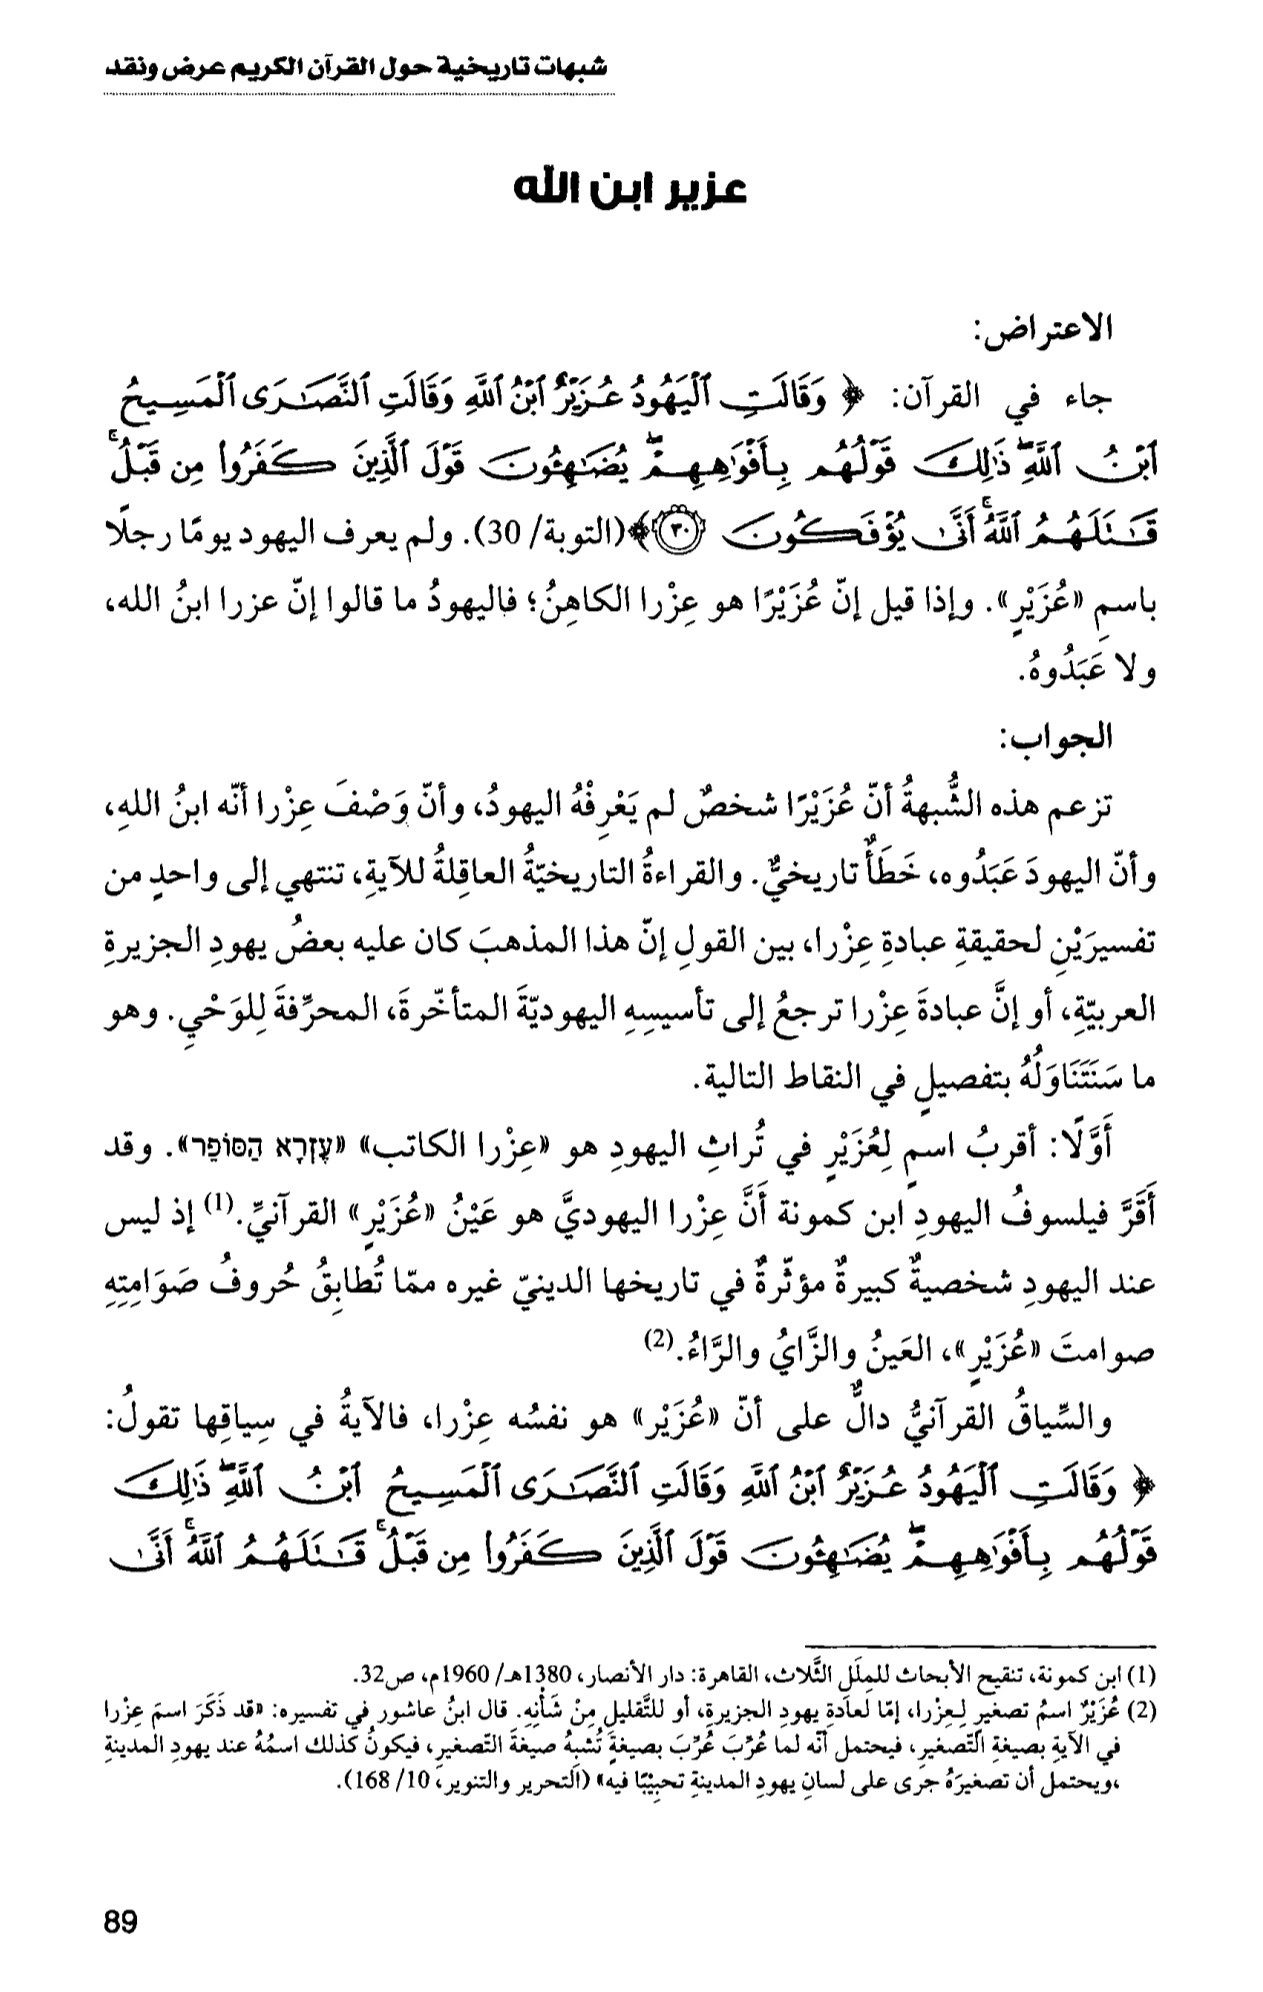 شبهات تاريخية حول القرآن الكريم عرض ونقد
عزير ابن الله
الاعتراض:
جاء في القرآن: ﴿ وَقَالَتِ ٱلْيَهُودُ عُزَيْرٌ ٱبْنُ ٱللَّهِ وَقَالَتِ ٱلنَّصَـٰرَى ٱلْمَسِيحُ
ٱبْنُ ٱللَّهِ ۖ ذَٰلِكَ قَوْلُهُم بِأَفْوَٰهِهِمْ ۖ يُضَـٰهِـُٔونَ قَوْلَ ٱلَّذِينَ كَفَرُوا۟ مِن قَبْلُ ۚ
قَـٰتَلَهُمُ ٱللَّهُ ۚ أَنَّىٰ يُؤْفَكُونَ ۝٣٠﴾(التوبة/ 30). ولم يعرف اليهود يومًا رجلًا
باسمِ «عُزَيْرٍ». وإذا قيل إنّ عُزَيْرًا هو عِزْرا الكاهنُ؛ فاليهودُ ما قالوا إنّ عزرا ابنُ الله،
ولا عَبَدُوهُ.
الجواب:
تزعم هذه الشُّبهةُ أنّ عُزَيْرًا شخصٌ لم يَعْرِفْهُ اليهودُ، وأنّ وَصْفَ عِزْرا أنّه ابنُ اللهِ،
وأنّ اليهودَ عَبَدُوه، خَطَأٌ تاريخيٌّ. والقراءةُ التاريخيّةُ العاقِلةُ للآيةِ، تنتهي إلى واحدٍ من
تفسيرَيْنِ لحقيقةِ عبادةِ عِزْرا، بين القولِ إنّ هذا المذهبَ كان عليه بعضُ يهودِ الجزيرةِ
العربيّةِ، أو إنَّ عبادةَ عِزْرا ترجعُ إلى تأسيسِهِ اليهوديّةَ المتأخّرةَ، المحرِّفةَ لِلوَحْيِ. وهو
ما سَنَتَنَاوَلُهُ بتفصيلٍ في النقاط التالية.
أوَّلًا: أقربُ اسمٍ لِعُزَيْرٍ في تُراثِ اليهودِ هو «عِزْرا الكاتب» «עֶזְרָא הַסּוֹפֵר». وقد
أَقَرَّ فيلسوفُ اليهودِ ابن كمونة أَنَّ عِزْرا اليهوديَّ هو عَيْنُ «عُزَيْرٍ» القرآنيِّ.(1) إذ ليس
عند اليهودِ شخصيةٌ كبيرةٌ مؤثّرةٌ في تاريخها الدينيّ غيره ممّا تُطابِقُ حُروفُ صَوَامِتِهِ
صوامتَ «عُزَيْرٍ»، العَينُ والزَّايُ والرَّاءُ.(2)
والسِّياقُ القرآنيُّ دالٌّ على أنّ «عُزَيْر» هو نفسُه عِزْرا، فالآيةُ في سِياقِها تقولُ:
﴿ وَقَالَتِ ٱلْيَهُودُ عُزَيْرٌ ٱبْنُ ٱللَّهِ وَقَالَتِ ٱلنَّصَـٰرَى ٱلْمَسِيحُ ٱبْنُ ٱللَّهِ ۖ ذَٰلِكَ
قَوْلُهُم بِأَفْوَٰهِهِمْ ۖ يُضَـٰهِـُٔونَ قَوْلَ ٱلَّذِينَ كَفَرُوا۟ مِن قَبْلُ ۚ قَـٰتَلَهُمُ ٱللَّهُ ۚ أَنَّىٰ
(1) ابن كمونة، تنقيح الأبحاث للمِلَلِ الثَّلاث، القاهرة: دار الأنصار، 1380هـ/ 1960م، ص32.
(2) عُزَيْرٌ اسمُ تصغيرٍ لِعِزْرا، إمّا لعادةِ يهودِ الجزيرةِ، أو للتَّقليلِ مِنْ شَأْنِهِ. قال ابنُ عاشور في تفسيره: «قد ذَكَرَ اسمَ عِزْرا
في الآيةِ بصيغةِ التَّصغيرِ، فيحتمل أنّه لما عُرِّبَ عُرِّبَ بصيغةٍ تُشبِهُ صيغةَ التّصغيرِ، فيكونُ كذلك اسمُهُ عند يهودِ المدينةِ
،ويحتمل أن تصغيرَهُ جرَى على لسانِ يهودِ المدينةِ تحبيبًا فيه» (التحرير والتنوير، 10/ 168).
89